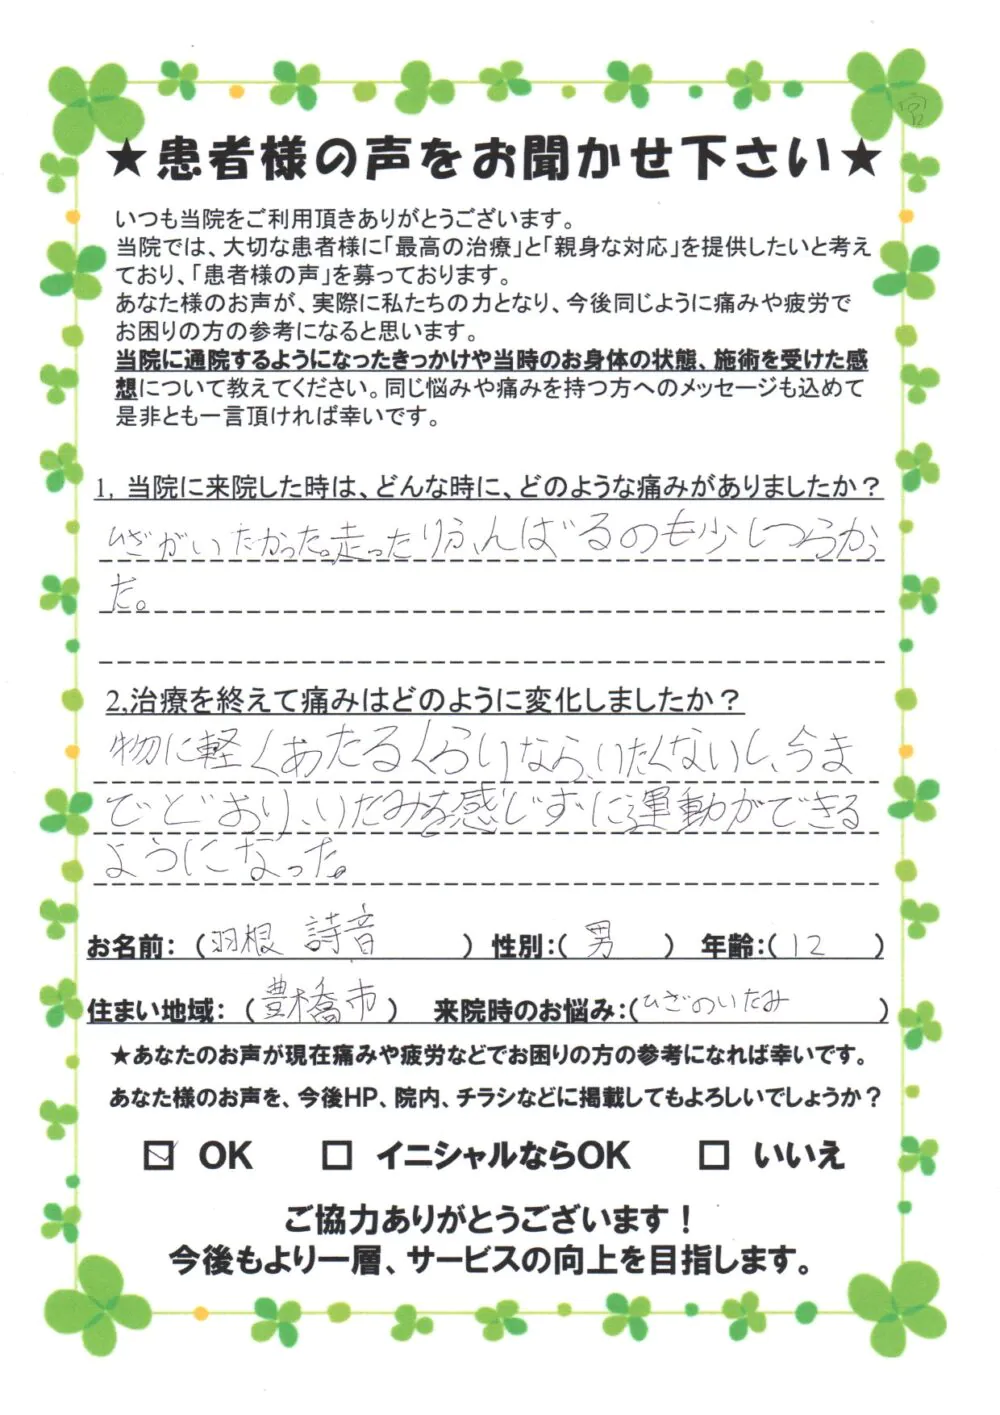 宮
★患者様の声をお聞かせ下さい★
いつも当院をご利用頂きありがとうございます。
当院では、大切な患者様に「最高の治療」と「親身な対応」を提供したいと考え
ており、「患者様の声」を募っております。
あなた様のお声が、実際に私たちの力となり、今後同じように痛みや疲労で
お困りの方の参考になると思います。
当院に通院するようになったきっかけや当時のお身体の状態、施術を受けた感
想について教えてください。同じ悩みや痛みを持つ方へのメッセージも込めて
是非とも一言頂ければ幸いです。
1, 当院に来院した時は、どんな時に、どのような痛みがありましたか？
ひざがいたかった。走ったりふんばるのも少しつらかっ
た。
2,治療を終えて痛みはどのように変化しましたか？
物に軽くあたるくらいなら、いたくないし、今ま
でどおり、いたみを感じずに運動ができる
ようになった。
お名前：（羽根 詩音 ）性別：（ 男 ） 年齢：（ 12 ）
住まい地域：（豊橋市） 来院時のお悩み：（ひざのいたみ ）
★あなたのお声が現在痛みや疲労などでお困りの方の参考になれば幸いです。
あなた様のお声を、今後HP、院内、チラシなどに掲載してもよろしいでしょうか？
☑ OK □ イニシャルならOK □ いいえ
ご協力ありがとうございます！
今後もより一層、サービスの向上を目指します。